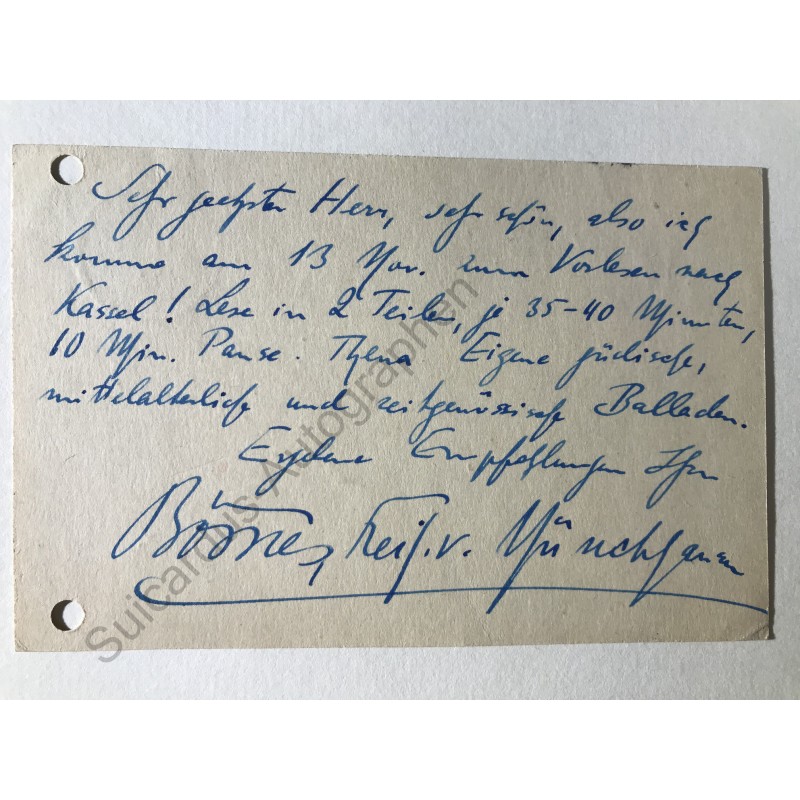 Sehr geehrter Herr, sehr schön, also ich
komme am 13 Nov. zum Vorlesen nach
Kassel! Lese in 2 Teilen, je 35-40 Minuten,
10 Min. Pause. Thema Eigene jüdische,
mittelalterliche und zeitgenössische Balladen.
Ergebene Empfehlungen Ihr
Börries, Freih. v. Münchhausen
Suicardus Autographen